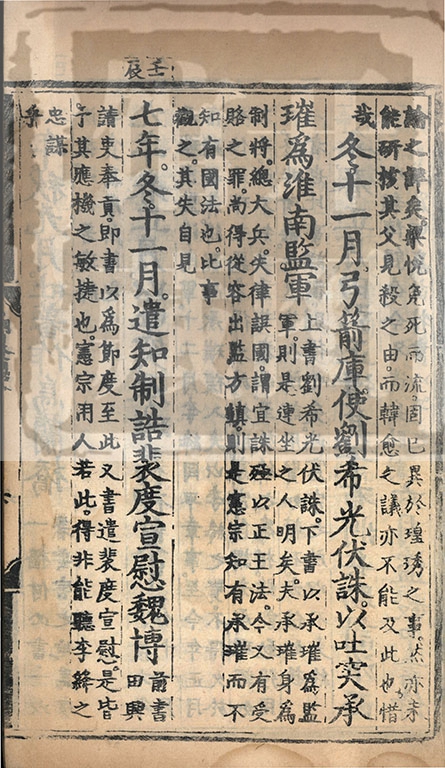 壬辰
論之詳矣。梁悅免死而流。固已異於瑝琇之事。然亦未
能研核其父見殺之由。而韓愈之議亦不能及此也。惜
哉
冬十一月弓箭庫使劉希光伏誅。以吐突承
璀爲淮南監軍
上書劉希光伏誅。下書以承璀爲監
軍。則是連坐之人明矣。夫承璀身爲
制將。總大兵。失律誤國。謂宜誅殛以正王法。今又有受
賂之罪。尚得從容出監方鎮。則是憲宗知有承璀而不
知有國法也。比事
觀之。其失自見
七年。冬十一月。遣知制誥裴度宣慰魏博
前書
田興
請吏奉貢。即書以爲節度至此又書遣裴度宣慰。是皆
予其應機之敏捷也。憲宗用人若此。得非能聽李絳之
忠謀
乎